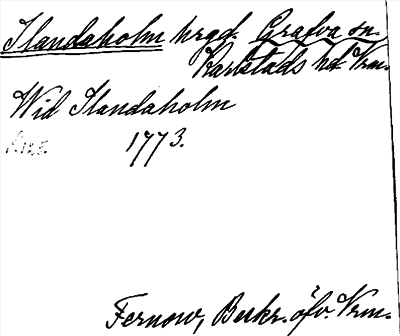 Ilandaholm hgd. Grafva sn.
Karlstads hd Vrm.
Wid Ilandaholm
1773.
Fernow, Beskr. öfv. Vrm.